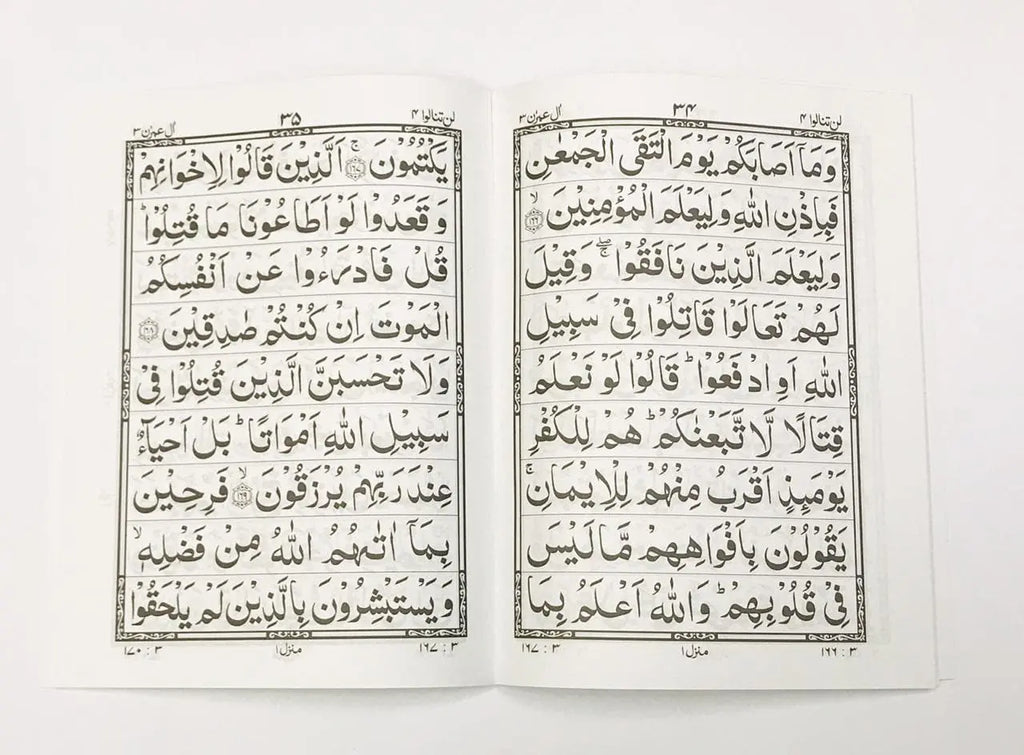 لن تنالوا ۴
۳۴
اٰل عمرٰن ۳
وَمَاۤ اَصَابَكُمْ يَوْمَ الْتَقَى الْجَمْعٰنِ
فَبِاِذْنِ اللّٰهِ وَلِيَعْلَمَ الْمُؤْمِنِيْنَ ۙ﴿۱۶۶﴾
وَلِيَعْلَمَ الَّذِيْنَ نَافَقُوْا ۖۚ وَقِيْلَ
لَهُمْ تَعَالَوْا قَاتِلُوْا فِىْ سَبِيْلِ
اللّٰهِ اَوِ ادْفَعُوْا ؕ قَالُوْا لَوْ نَعْلَمُ
قِتَالًا لَّا تَّبَعْنٰكُمْ ؕ هُمْ لِلْكُفْرِ
يَوْمَىِٕذٍ اَقْرَبُ مِنْهُمْ لِلْاِيْمَانِ ۚ
يَقُوْلُوْنَ بِاَفْوَاهِهِمْ مَّا لَيْسَ
فِىْ قُلُوْبِهِمْ ؕ وَاللّٰهُ اَعْلَمُ بِمَا
۳ : ۱۶۶
منزل ۱
۳ : ۱۶۷
لن تنالوا ۴
۳۵
اٰل عمرٰن ۳
يَكْتُمُوْنَ ۚ﴿۱۶۷﴾ اَلَّذِيْنَ قَالُوْا لِاِخْوَانِهِمْ
وَقَعَدُوْا لَوْ اَطَاعُوْنَا مَا قُتِلُوْا ؕ
قُلْ فَادْرَءُوْا عَنْ اَنْفُسِكُمُ
الْمَوْتَ اِنْ كُنْتُمْ صٰدِقِيْنَ ﴿۱۶۸﴾
وَلَا تَحْسَبَنَّ الَّذِيْنَ قُتِلُوْا فِىْ
سَبِيْلِ اللّٰهِ اَمْوَاتًا ؕ بَلْ اَحْيَآءٌ
عِنْدَ رَبِّهِمْ يُرْزَقُوْنَ ۙ﴿۱۶۹﴾ فَرِحِيْنَ
بِمَاۤ اٰتٰٮهُمُ اللّٰهُ مِنْ فَضْلِهٖ ۙ
وَيَسْتَبْشِرُوْنَ بِالَّذِيْنَ لَمْ يَلْحَقُوْا
۳ : ۱۶۷
منزل ۱
۳ : ۱۷۰